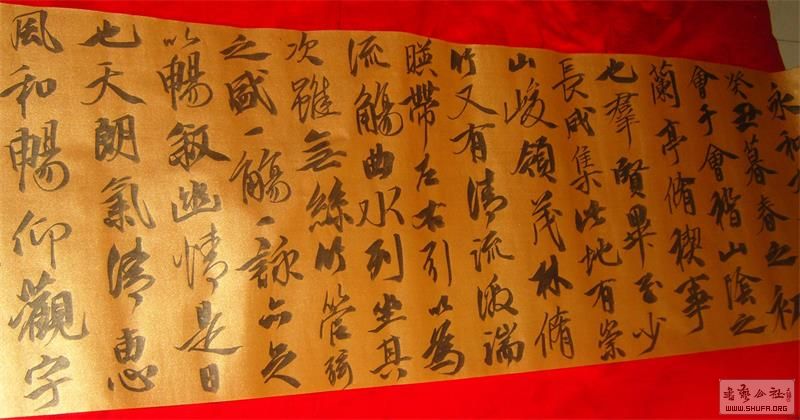 永和
癸丑暮春之初
會于會稽山陰之
蘭亭脩禊事
也羣賢畢至少
長咸集此地有崇
山峻領茂林脩
竹又有清流激湍
暎帶左右引以為
流觴曲水列坐其
次雖無絲竹管弦
之盛一觴一詠亦足
以暢敘幽情是日
也天朗氣清惠
風和暢仰觀宇
書藝公社
WWW.SHUFA.ORG